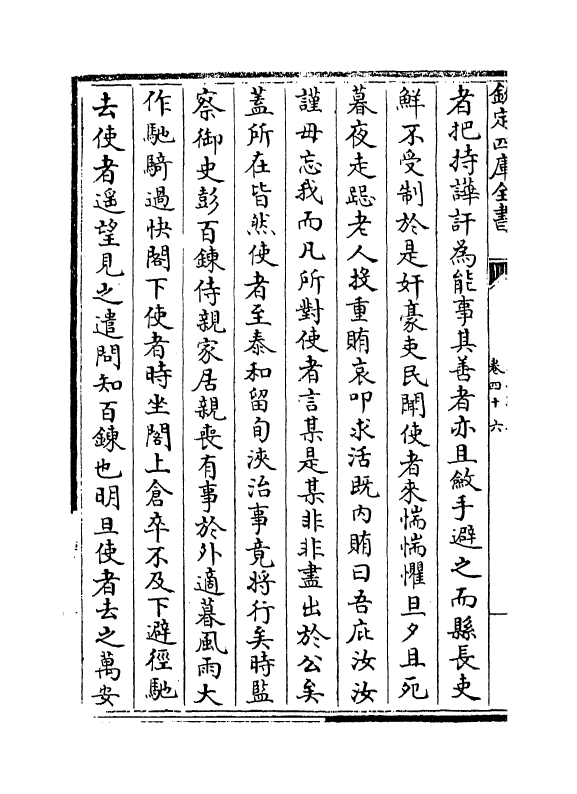 欽定四庫全書
卷四十六
者把持譁訐為能事其善者亦且斂手避之而縣長吏
鮮不受制於是奸豪吏民聞使者來惴惴懼旦夕且死
暮夜走跽老人投重賄哀叩求活既内賄曰吾庇汝汝
謹毋忘我而凡所對使者言某是某非非盡出於公矣
蓋所在皆然使者至泰和留旬浹治事竟將行矣時監
察御史彭百鍊侍親家居親喪有事於外適暮風雨大
作馳騎過快閣下使者時坐閣上倉卒不及下避徑馳
去使者遥望見之遣問知百鍊也明旦使者去之萬安